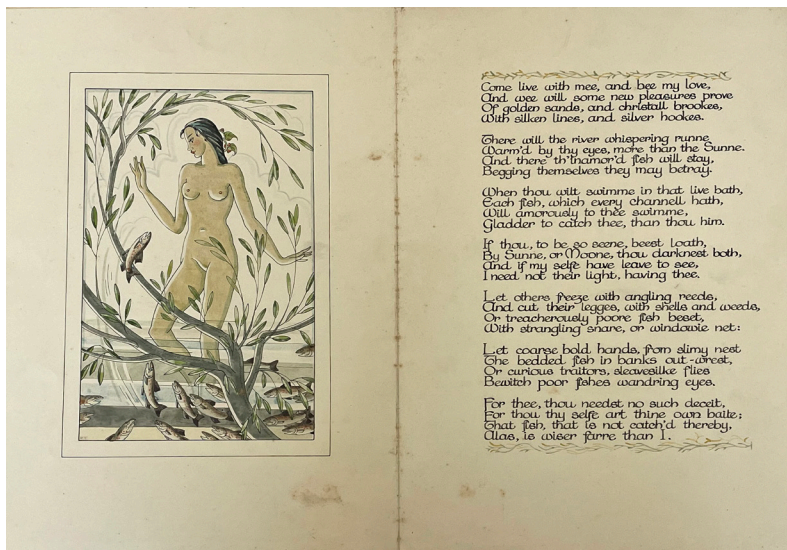 Come live with mee, and bee my love,
And wee will some new pleasures prove
Of golden sands, and christall brookes,
With silken lines, and silver hookes.
There will the river whispering runne
Warm'd by thy eyes, more than the Sunne.
And there th'inamor'd fish will stay,
Begging themselves they may betray.
When thou wilt swimme in that live bath,
Each fish, which every channell hath,
Will amorously to thee swimme,
Gladder to catch thee, than thou him.
If thou, to be so seene, beest loath,
By Sunne, or Moone, thou darknest both,
And if my selfe have leave to see,
I need not their light, having thee.
Let others freeze with angling reeds,
And cut their legges, with shells and weeds,
Or treacherously poore fish beset,
With strangling snare, or windowie net:
Let coarse bold hands, from slimy nest
The bedded fish in banks out-wrest,
Or curious traitors, sleavesilke flies
Bewitch poor fishes wandring eyes.
For thee, thou needst no such deceit,
For thou thy selfe art thine own baite;
That fish, that is not catch'd thereby,
Alas, is wiser farre than I.